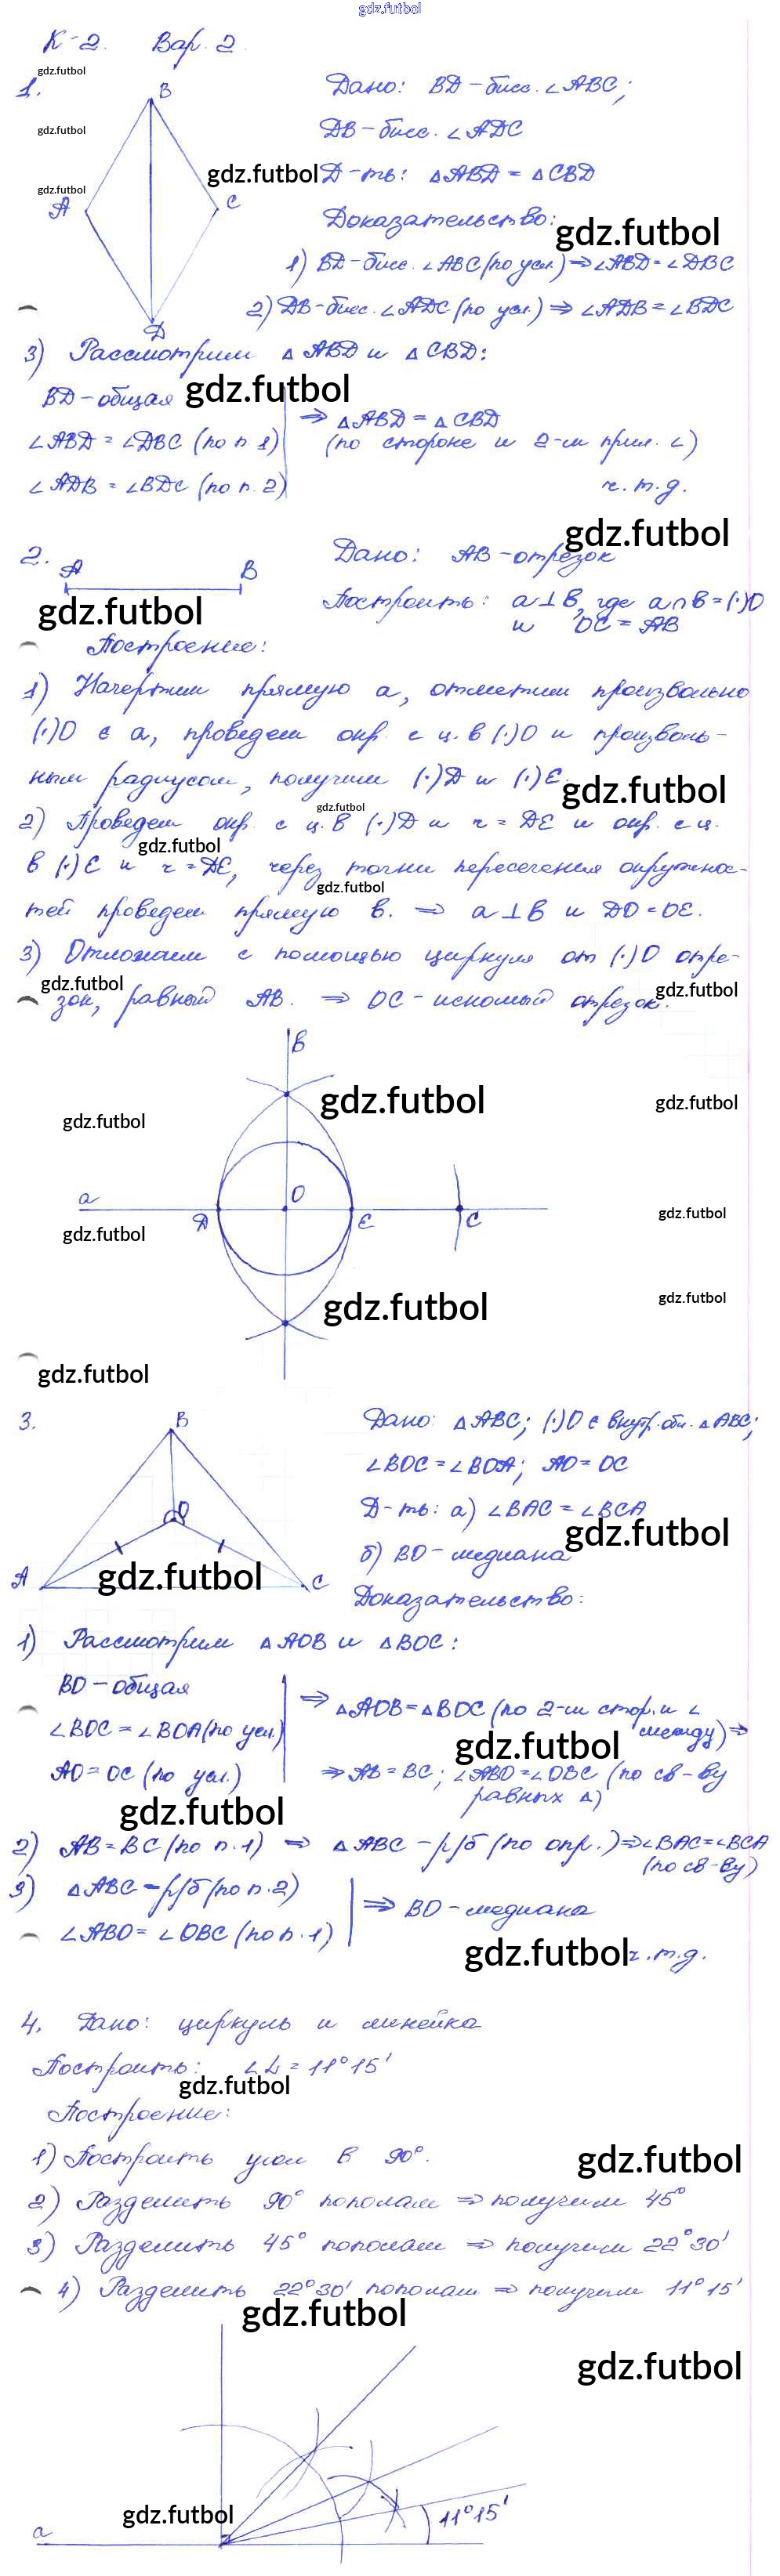 gdz.futbol
К-2. Вар. 2
gdz.futbol
1.
B
A
C
D
gdz.futbol
gdz.futbol
Дано: BD - бисс. ∠ABC;
DB - бисс. ∠ADC
gdz.futbol
Д-ть: △ABD = △CBD
Доказательство:
gdz.futbol
1) BD - бисс. ∠ABC (по усл.) ⇒ ∠ABD = ∠DBC
2) DB - бисс. ∠ADC (по усл.) ⇒ ∠ADB = ∠BDC
3) Рассмотрим △ABD и △CBD:
BD - общая
gdz.futbol
∠ABD = ∠DBC (по п. 1)
∠ADB = ∠BDC (по п. 2)
⇒ △ABD = △CBD
(по стороне и 2-м прил. ∠)
ч.т.д.
gdz.futbol
2.
A B
gdz.futbol
Дано: AB - отрезок
Построить: a⊥b, где a∩b = (·)O
и OC = AB
Построение:
1) Начертим прямую a, отметим произвольно
(·)O ∈ a, проведем окр. с ц. в (·)O и произволь-
ным радиусом, получим (·)D и (·)E.
gdz.futbol
gdz.futbol
2) Проведем окр. с ц. в (·)D и r = DE и окр. с ц.
gdz.futbol
в (·)E и r = DE, через точки пересечения окружнос-
gdz.futbol
тей проведем прямую b. ⇒ a⊥b и DO = OE.
3) Отложим с помощью циркуля от (·)O отре-
gdz.futbol
gdz.futbol
зок, равный AB. ⇒ OC - искомый отрезок.
b
gdz.futbol
gdz.futbol
gdz.futbol
a
D
O
E
C
gdz.futbol
gdz.futbol
gdz.futbol
gdz.futbol
gdz.futbol
3.
B
O
A
C
gdz.futbol
Дано: △ABC; (·)O ∈ внутр. обл. △ABC;
∠BOC = ∠BOA; AO = OC
Д-ть: а) ∠BAC = ∠BCA
gdz.futbol
б) BO - медиана
Доказательство:
1) Рассмотрим △AOB и △BOC:
BO - общая
∠BOC = ∠BOA (по усл.)
AO = OC (по усл.)
⇒ △AOB = △BOC (по 2-м стор. и ∠
между) ⇒
gdz.futbol
⇒ AB = BC; ∠ABO = ∠OBC (по св-ву
равных △)
gdz.futbol
2) AB = BC (по п. 1) ⇒ △ABC - р/б (по опр.) ⇒ ∠BAC = ∠BCA
(по св-ву)
3) △ABC - р/б (по п. 2)
∠ABO = ∠OBC (по п. 1)
⇒ BO - медиана
gdz.futbol
ч.т.д.
4. Дано: циркуль и линейка
Построить: ∠α = 11°15'
gdz.futbol
Построение:
1) Построить угол в 90°.
gdz.futbol
2) Разделить 90° пополам ⇒ получим 45°
3) Разделить 45° пополам ⇒ получим 22°30'
4) Разделить 22°30' пополам ⇒ получим 11°15'
gdz.futbol
gdz.futbol
gdz.futbol
a
11°15'